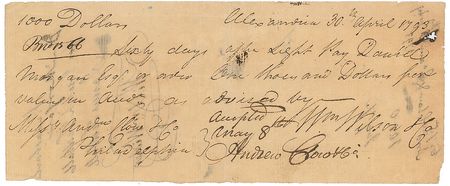 1000 Dollars Alexandria 30th April 1793
Sixty days after Sight Pay Daniel
Morgan Esqr or order One thousand Dollars
value in Acct as advised by
Messrs Andw Clow & Co Accepted Wm Wilson
Philadelphia May 8th
Andrew Clow & Co